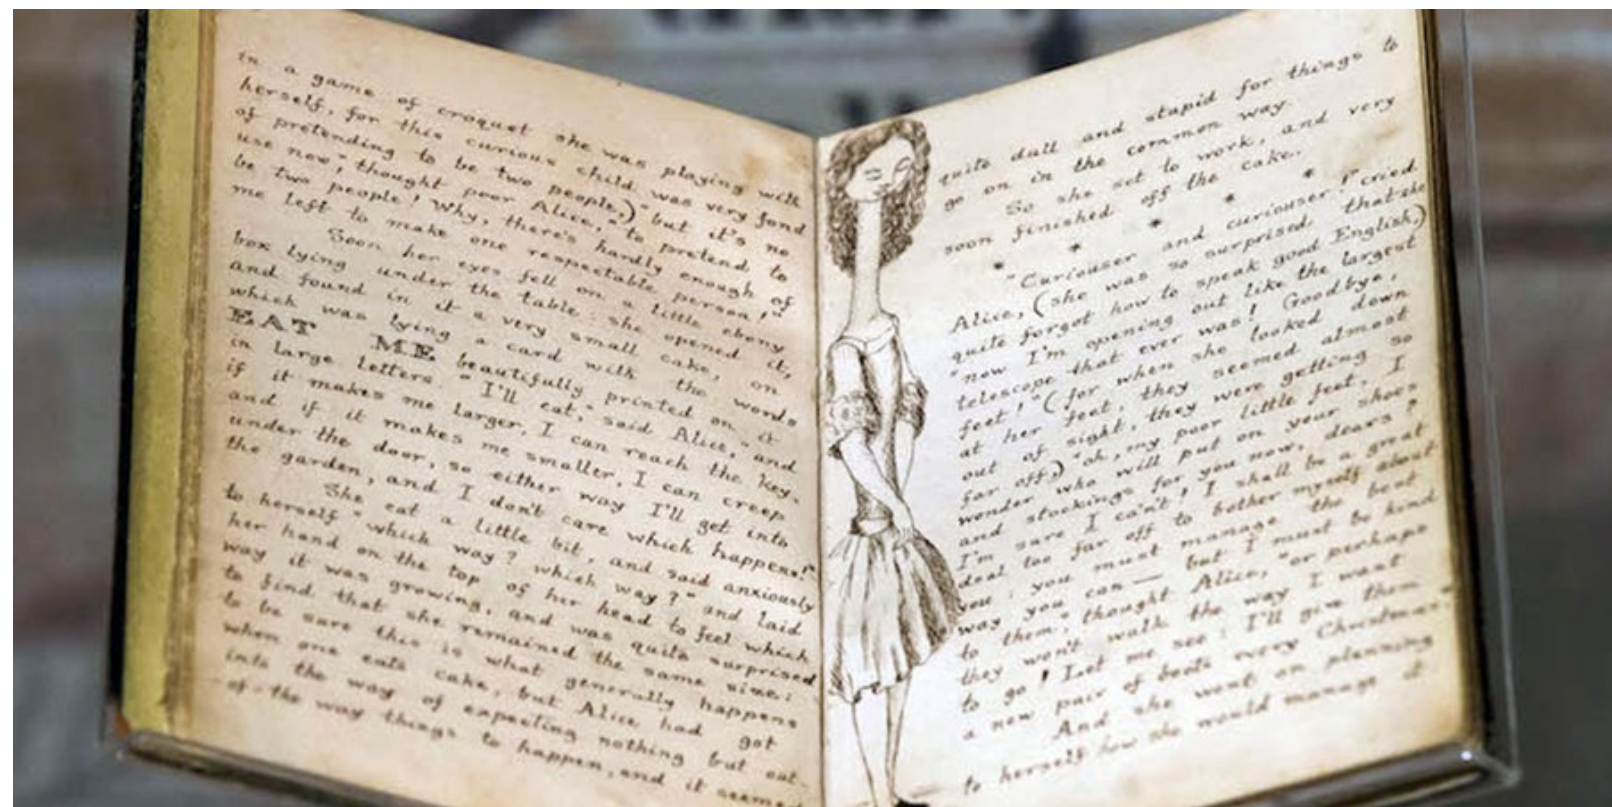 in a game of croquet she was playing with
herself, for this curious child was very fond
of pretending to be two people,) "but it's no
use now," thought poor Alice, "to pretend to
be two people! Why, there's hardly enough of
me left to make one respectable person!"
Soon her eyes fell on a little ebony
box lying under the table: she opened it,
and found in it a very small cake, on
which was lying a card with the words
EAT ME beautifully printed on it
in large letters. "I'll eat," said Alice, "and
if it makes me larger, I can reach the key,
and if it makes me smaller, I can creep
under the door, so either way I'll get into
the garden, and I don't care which happens!"
She eat a little bit, and said anxiously
to herself "which way? which way?" and laid
her hand on the top of her head to feel which
way it was growing, and was quite surprised
to find that she remained the same size:
to be sure this is what generally happens
when one eats cake, but Alice had got
into the way of expecting nothing but out-
of-the way things to happen, and it seemed
quite dull and stupid for things to
go on in the common way.
So she set to work, and very
soon finished off the cake.
* * * * *
"Curiouser and curiouser!" cried
Alice, (she was so surprised that she
quite forgot how to speak good English,)
"now I'm opening out like the largest
telescope that ever was! Goodbye,
feet!" (for when she looked down
at her feet, they seemed almost
out of sight, they were getting so
far off,) "oh, my poor little feet, I
wonder who will put on your shoes
and stockings for you now, dears?
I'm sure I can't! I shall be a great
deal too far off to bother myself about
you: you must manage the best
way you can — but I must be kind
to them," thought Alice, "or perhaps
they won't walk the way I want
to go! Let me see: I'll give them
a new pair of boots every Christmas."
And she went on planning
to herself how she would manage it